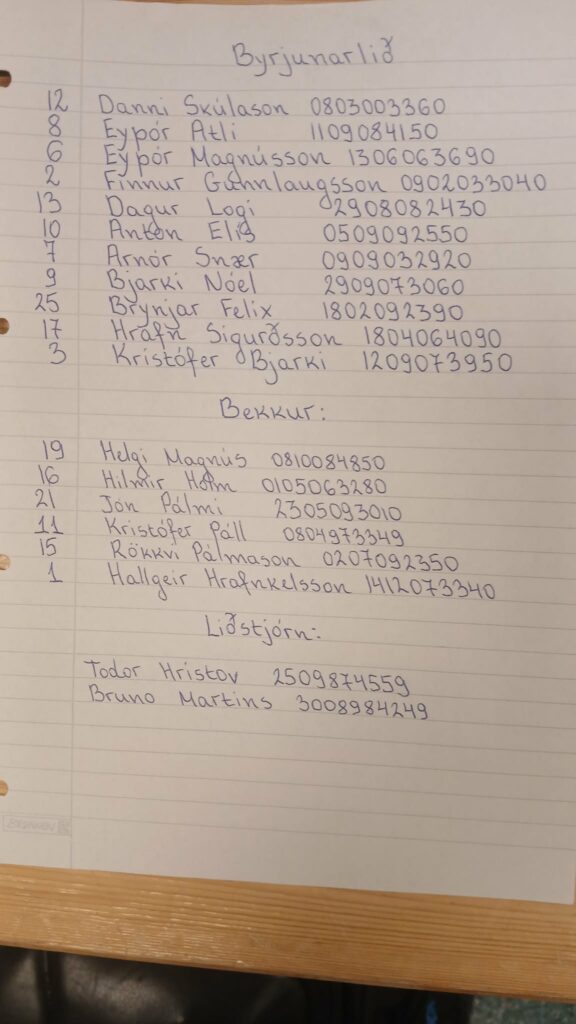 Byrjunarlið
12 Danni Skúlason 0803003360
8 Eyþór Atli 1109084150
6 Eyþór Magnússon 1306063690
2 Finnur Gunnlaugsson 0902033040
13 Dagur Logi 2908082430
10 Anton Elis 0509092550
7 Arnór Snær 0909032920
9 Bjarki Nóel 2909073060
25 Brynjar Felix 1802092390
17 Hrafn Sigurðsson 1804064090
3 Kristófer Bjarki 1209073950
Bekkur:
19 Helgi Magnús 0810084850
16 Hilmir Hólm 0105063280
21 Jón Pálmi 2305093010
11 Kristófer Páll 0804973349
15 Rökkvi Pálmason 0207092350
1 Hallgeir Hrafnkelsson 1412073340
Liðstjórn:
Todor Hristov 2509874559
Bruno Martins 3008984249